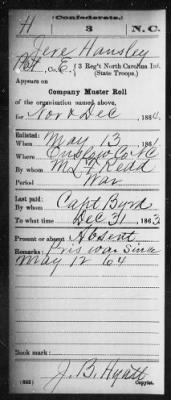 (Confederate.)
H 3 N.C.
Jere Hansley
Pvt, Co. E, 3 Reg't North Carolina Inf.
(State Troops.)
Appears on
Company Muster Roll
of the organization named above,
for Nov & Dec, 1864.
Enlisted:
When May 13, 1861
Where Onslow Co NC
By whom M. L. F. Redd
Period War
Last paid:
By whom Capt Byrd
To what time Dec 31, 1863
Present or absent Absent
Remarks: Pris war since
May 12 64
Book mark:
J. B. Hyatt
(642) Copyist.